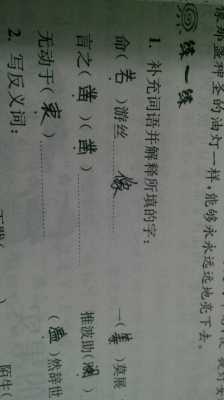 那盏神圣的油灯一样,能够永永远远地亮下去。
练一练
1. 补充词语并解释所填的字:
命(若)游丝 像 一(筹)莫展
言之(凿)(凿) 推波助(澜)
无动于(衷) (溘)然辞世
2. 写反义词:
陌生(